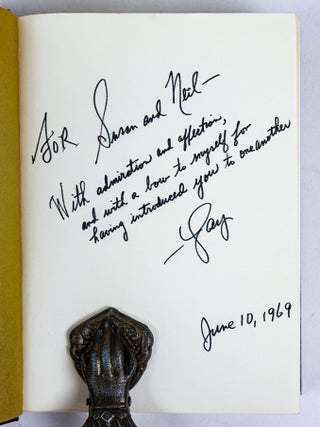 For Susan and Neil—
With admiration and affection,
and with a bow to myself for
having introduced you to one another
—Gay
June 10, 1969